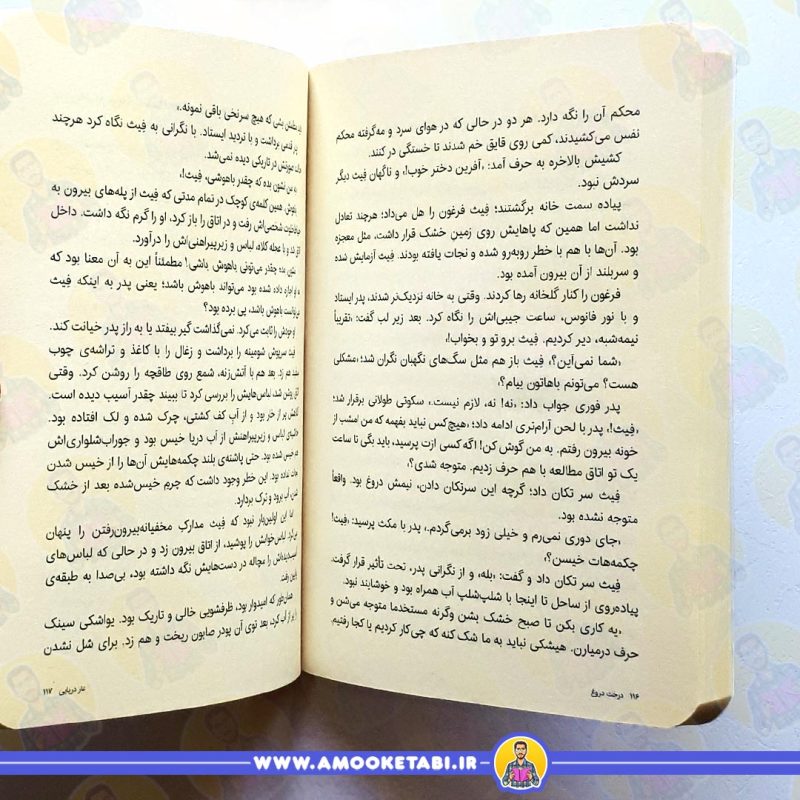 محکم آن را نگه دارد. هر دو در حالی که در هوای سرد و مه‌گرفته محکم
نفس می‌کشیدند، کمی روی قایق خم شدند تا خستگی در کنند.
کشیش بالاخره به حرف آمد: «آفرین دختر خوب!» و ناگهان فِیث دیگر
سردش نبود.
پیاده سمت خانه برگشتند؛ فِیث فرغون را هل می‌داد؛ هرچند تعادل
نداشت اما همین که پاهایش روی زمین خشک قرار داشت، مثل معجزه
بود. آن‌ها با هم با خطر روبه‌رو شده و نجات یافته بودند. فِیث آزمایش شده
و سربلند از آن بیرون آمده بود.
فرغون را کنار گلخانه رها کردند. وقتی به خانه نزدیک‌تر شدند، پدر ایستاد
و با نور فانوس، ساعت جیبی‌اش را نگاه کرد. بعد زیر لب گفت: «تقریباً
نیمه‌شبه، دیر کردیم. فِیث برو تو و بخواب!»
«شما نمی‌آین؟» فِیث باز هم مثل سگ‌های نگهبان نگران شد؛ «مشکلی
هست؟ می‌تونم باهاتون بیام؟»
پدر فوری جواب داد: «نه! نه، لازم نیست.» سکوتی طولانی برقرار شد؛
«فِیث!» پدر با لحن آرام‌تری ادامه داد؛ «هیچ‌کس نباید بفهمه که من امشب از
خونه بیرون رفتم. به من گوش کن! اگه کسی ازت پرسید، باید بگی تا ساعت
یک تو اتاق مطالعه با هم حرف زدیم. متوجه شدی؟»
فِیث سر تکان داد؛ گرچه این سرتکان دادن، نیمش دروغ بود. واقعاً
متوجه نشده بود.
«جای دوری نمی‌رم و خیلی زود برمی‌گردم.» پدر با مکث پرسید: «فِیث!
چکمه‌هات خیسن؟»
فِیث سر تکان داد و گفت: «بله» و از نگرانی پدر، تحت تأثیر قرار گرفت.
پیاده‌روی از ساحل تا اینجا با شلپ‌شلپ آب همراه بود و خوشایند نبود.
«یه کاری بکن تا صبح خشک بشن وگرنه مستخدما متوجه می‌شن و
حرف درمیارن. هیشکی نباید به ما شک کنه که چی‌کار کردیم یا کجا رفتیم.
۱۱۶ درخت دروغ
مطمئن بشی که هیچ سرنخی باقی نمونه.»
قدمی برداشت و با تردید ایستاد. با نگرانی به فِیث نگاه کرد هرچند
صورتش در تاریکی دیده نمی‌شد.
«به من نشون بده که چقدر باهوشی، فِیث!»
باهوش. همین کلمه‌ی کوچک در تمام مدتی که فِیث از پله‌های بیرون به
شخصی‌اش رفت و در اتاق را باز کرد، او را گرم نگه داشت. داخل
شد و با عجله کلاه، لباس و زیرپیراهنی‌اش را درآورد.
نشون بده چقدر می‌تونی باهوش باشی! مطمئناً این به آن معنا بود که
به او اجازه داده شده بود می‌تواند باهوش باشد؛ یعنی پدر به اینکه فِیث
می‌توانست باهوش باشد، پی برده بود؟
او خودش را ثابت می‌کرد. نمی‌گذاشت گیر بیفتد یا به راز پدر خیانت کند.
فِیث سرپوش شومینه را برداشت و زغال را با کاغذ و تراشه‌ی چوب
هم زد. بعد هم با آتش‌زنه، شمع روی طاقچه را روشن کرد. وقتی
روشن شد، لباس‌هایش را بررسی کرد تا ببیند چقدر آسیب دیده است.
پر از خز بود و از آبِ کف کشتی، چرک شده و لک افتاده بود.
لباس و زیرپیراهنش از آب دریا خیس بود و جوراب‌شلواری‌اش
هم خیس شده بود. حتی پاشنه‌ی بلند چکمه‌هایش آن‌ها را از خیس شدن
نجات نداده بود. این خطر وجود داشت که چرم خیس‌شده بعد از خشک
شدن، آب برود و ترک بردارد.
اما این اولین‌بار نبود که فِیث مدارکِ مخفیانه‌بیرون‌رفتن را پنهان
می‌کرد. لباس‌خوابش را پوشید، از اتاق بیرون زد و در حالی که لباس‌های
آسیب‌دیده‌اش را مچاله در دست‌هایش نگه داشته بود، بی‌صدا به طبقه‌ی
پایین رفت.
همان‌طور که امیدوار بود، ظرفشویی خالی و تاریک بود. یواشکی سینک
را پر از آب کرد، بعد توی آن پودر صابون ریخت و هم زد. برای شل نشدن
غار دریایی ۱۱۷
WWW.AMOOKETABI.IR